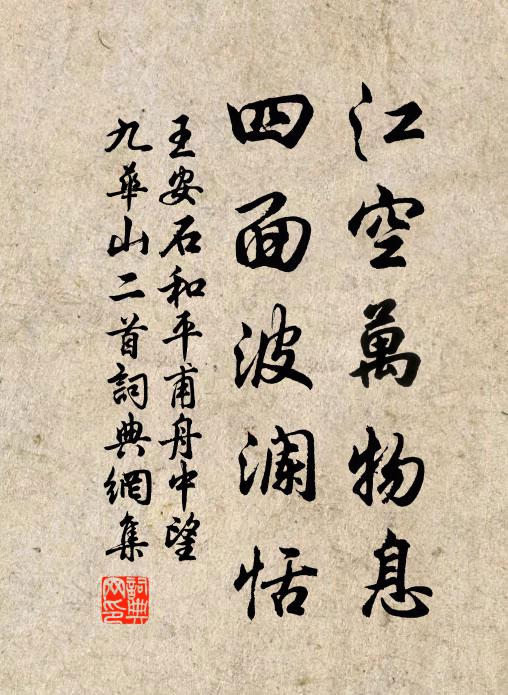 江空萬物息
四面波澜恬
王安石和平甫舟中望
九華山二首詞典網集
詞典網印